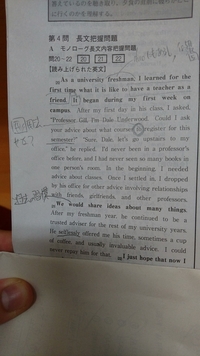 第4問 長文内容把握問題
A モノローグ長文内容把握問題
問20-22 20 21 22
【読み上げられた英文】
As a university freshman, I learned for the
first time what it is like to have a teacher as a
friend. It began during my first week on
campus. After my first day in his class, I asked,
"Professor Gill, I'm Dale Underwood. Could I ask
your advice about what courses to register for this
semester?" "Sure, Dale, let's go upstairs to my
office," he replied. I'd never been in a professor's
office before, and I had never seen so many books in
one person's room. In the beginning, I needed
advice about classes. Once I settled in, I dropped
by his office for other advice involving relationships
with friends, girlfriends and other professors.
We would share ideas about many things.
After my freshman year, he continued to be a
trusted adviser for the rest of my university years.
He selflessly offered me his time, sometimes a cup
of coffee, and usually invaluable advice. I could
never repay him for that. I just hope that now I